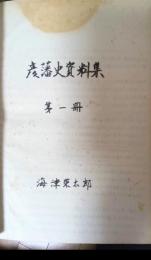 彦藩史資料集
第一冊
海津栄太郎